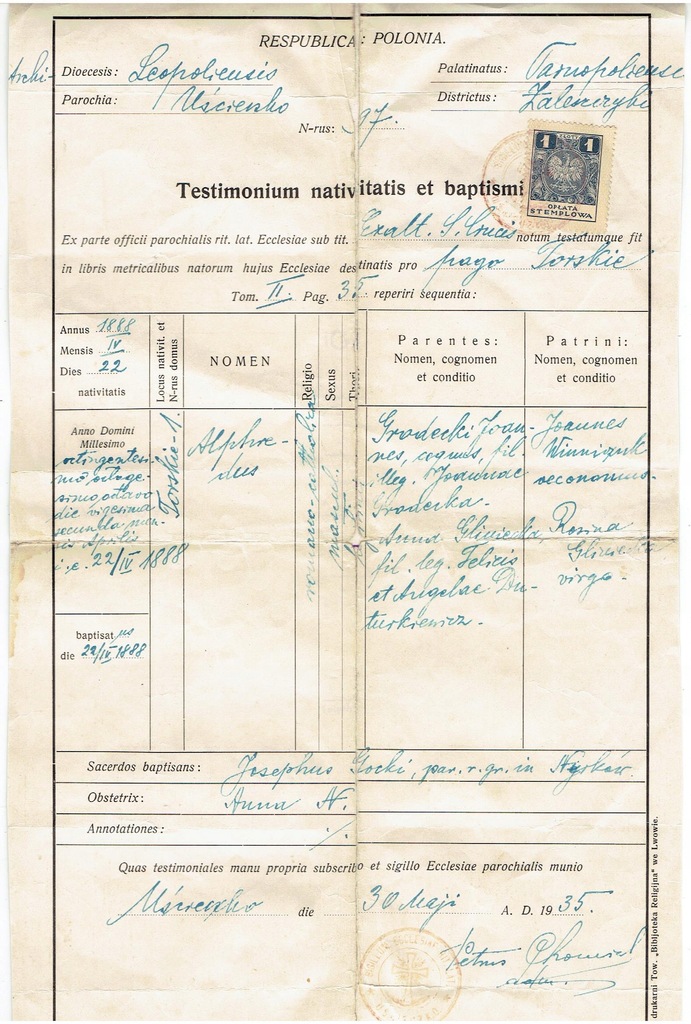 RESPUBLICA POLONIA.
Archi-
Dioecesis: Leopoliensis
Palatinatus: Tarnopoliensis
Parochia: Uścieczko
Districtus: Zaleszczyki
N-rus: 97.
1 ZŁOTY 1
OPŁATA
STEMPLOWA
Testimonium nativitatis et baptismi
Ex parte officii parochialis rit. lat. Ecclesiae sub tit. Exalt. S. Crucis notum testatumque fit
in libris metricalibus natorum hujus Ecclesiae destinatis pro pago Torskie
Tom. II. Pag. 35 reperiri sequentia:
Annus 1888
Mensis IV
Dies 22
nativitatis
Locus nativit. et
N-rus domus
NOMEN
Religio
Sexus
Thori
Parentes:
Nomen, cognomen
et conditio
Patrini:
Nomen, cognomen
et conditio
Anno Domini
Millesimo
octingentesi-
mo octoge-
simo octavo
die vigesima
secunda men-
sis Aprilis
i. e. 22/IV 1888
Torskie-1.
Alphre-
dus
romano-catholica
mascul.
Grodecki Joan-
nes, coquus, fil
illeg. Joannae
Grodecka.
Anna Gliniecka,
fil. leg. Felicis
et Angelae Du-
turkiewicz.
Joannes
Winniczuk
oeconomus.
Rosina
Gliniecka
virgo.
baptisatus
die 22/IV 1888
Sacerdos baptisans: Josephus Gocki, par. r. gr. in Nyrków.
Obstetrix: Anna N.
Annotationes: ./.
Quas testimoniales manu propria subscribo et sigillo Ecclesiae parochialis munio
Uścieczko die 30 Maji A. D. 1935.
Petrus Chomicz
adm.
drukarni Tow. „Bibljoteka Religijna" we Lwowie.